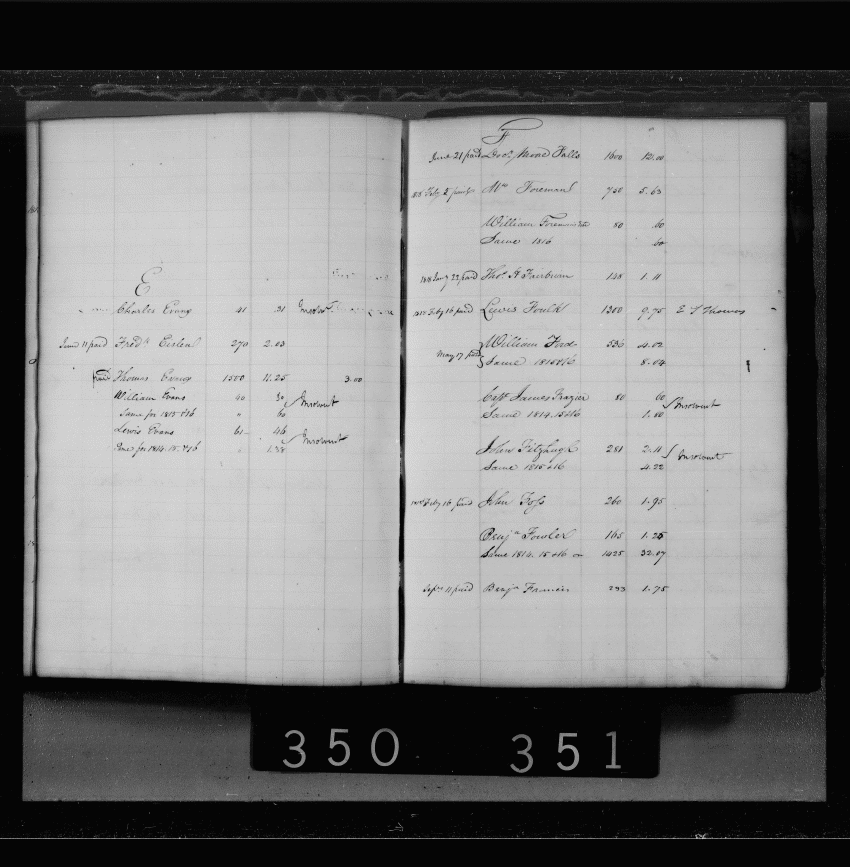 E
Charles Evans 41 .31
June 11 paid Fredk. 270 2.03
paid Thomas Evans 1500 11.25 3.00
William Evans 40 30 Insolvent
Same for 1815 & 16 " 60
Lewis Evans 61 46 Insolvent
for 1814. 15. & 16 1.38
F
June 21 paid Doct. Falls 1600 12.00
Feby 2 paid Wm Foreman 750 5.63
William Foreman 80 60
Same 1816 60
1818 Jany 22 paid Thos. H Fairburn 148 1.11
Feby 16 paid Lewis Foulk 1300 9.75 E S Thomas
May 17 paid William Ford 536 4.02
Same 1815 & 16 8.04
Capt James Frazier 80 60 Insolvent
Same 1814. 15 & 16 1.80
John Fitzhugh 281 2.11 Insolvent
Same 1815 & 16 4.22
Feby 16 paid John Foss 260 1.95
Benjn Fowler 165 1.25
Same 1814. 15 & 16 on 1425 32.07
Sepr 11 paid Benjn Francis 233 1.75
350 351